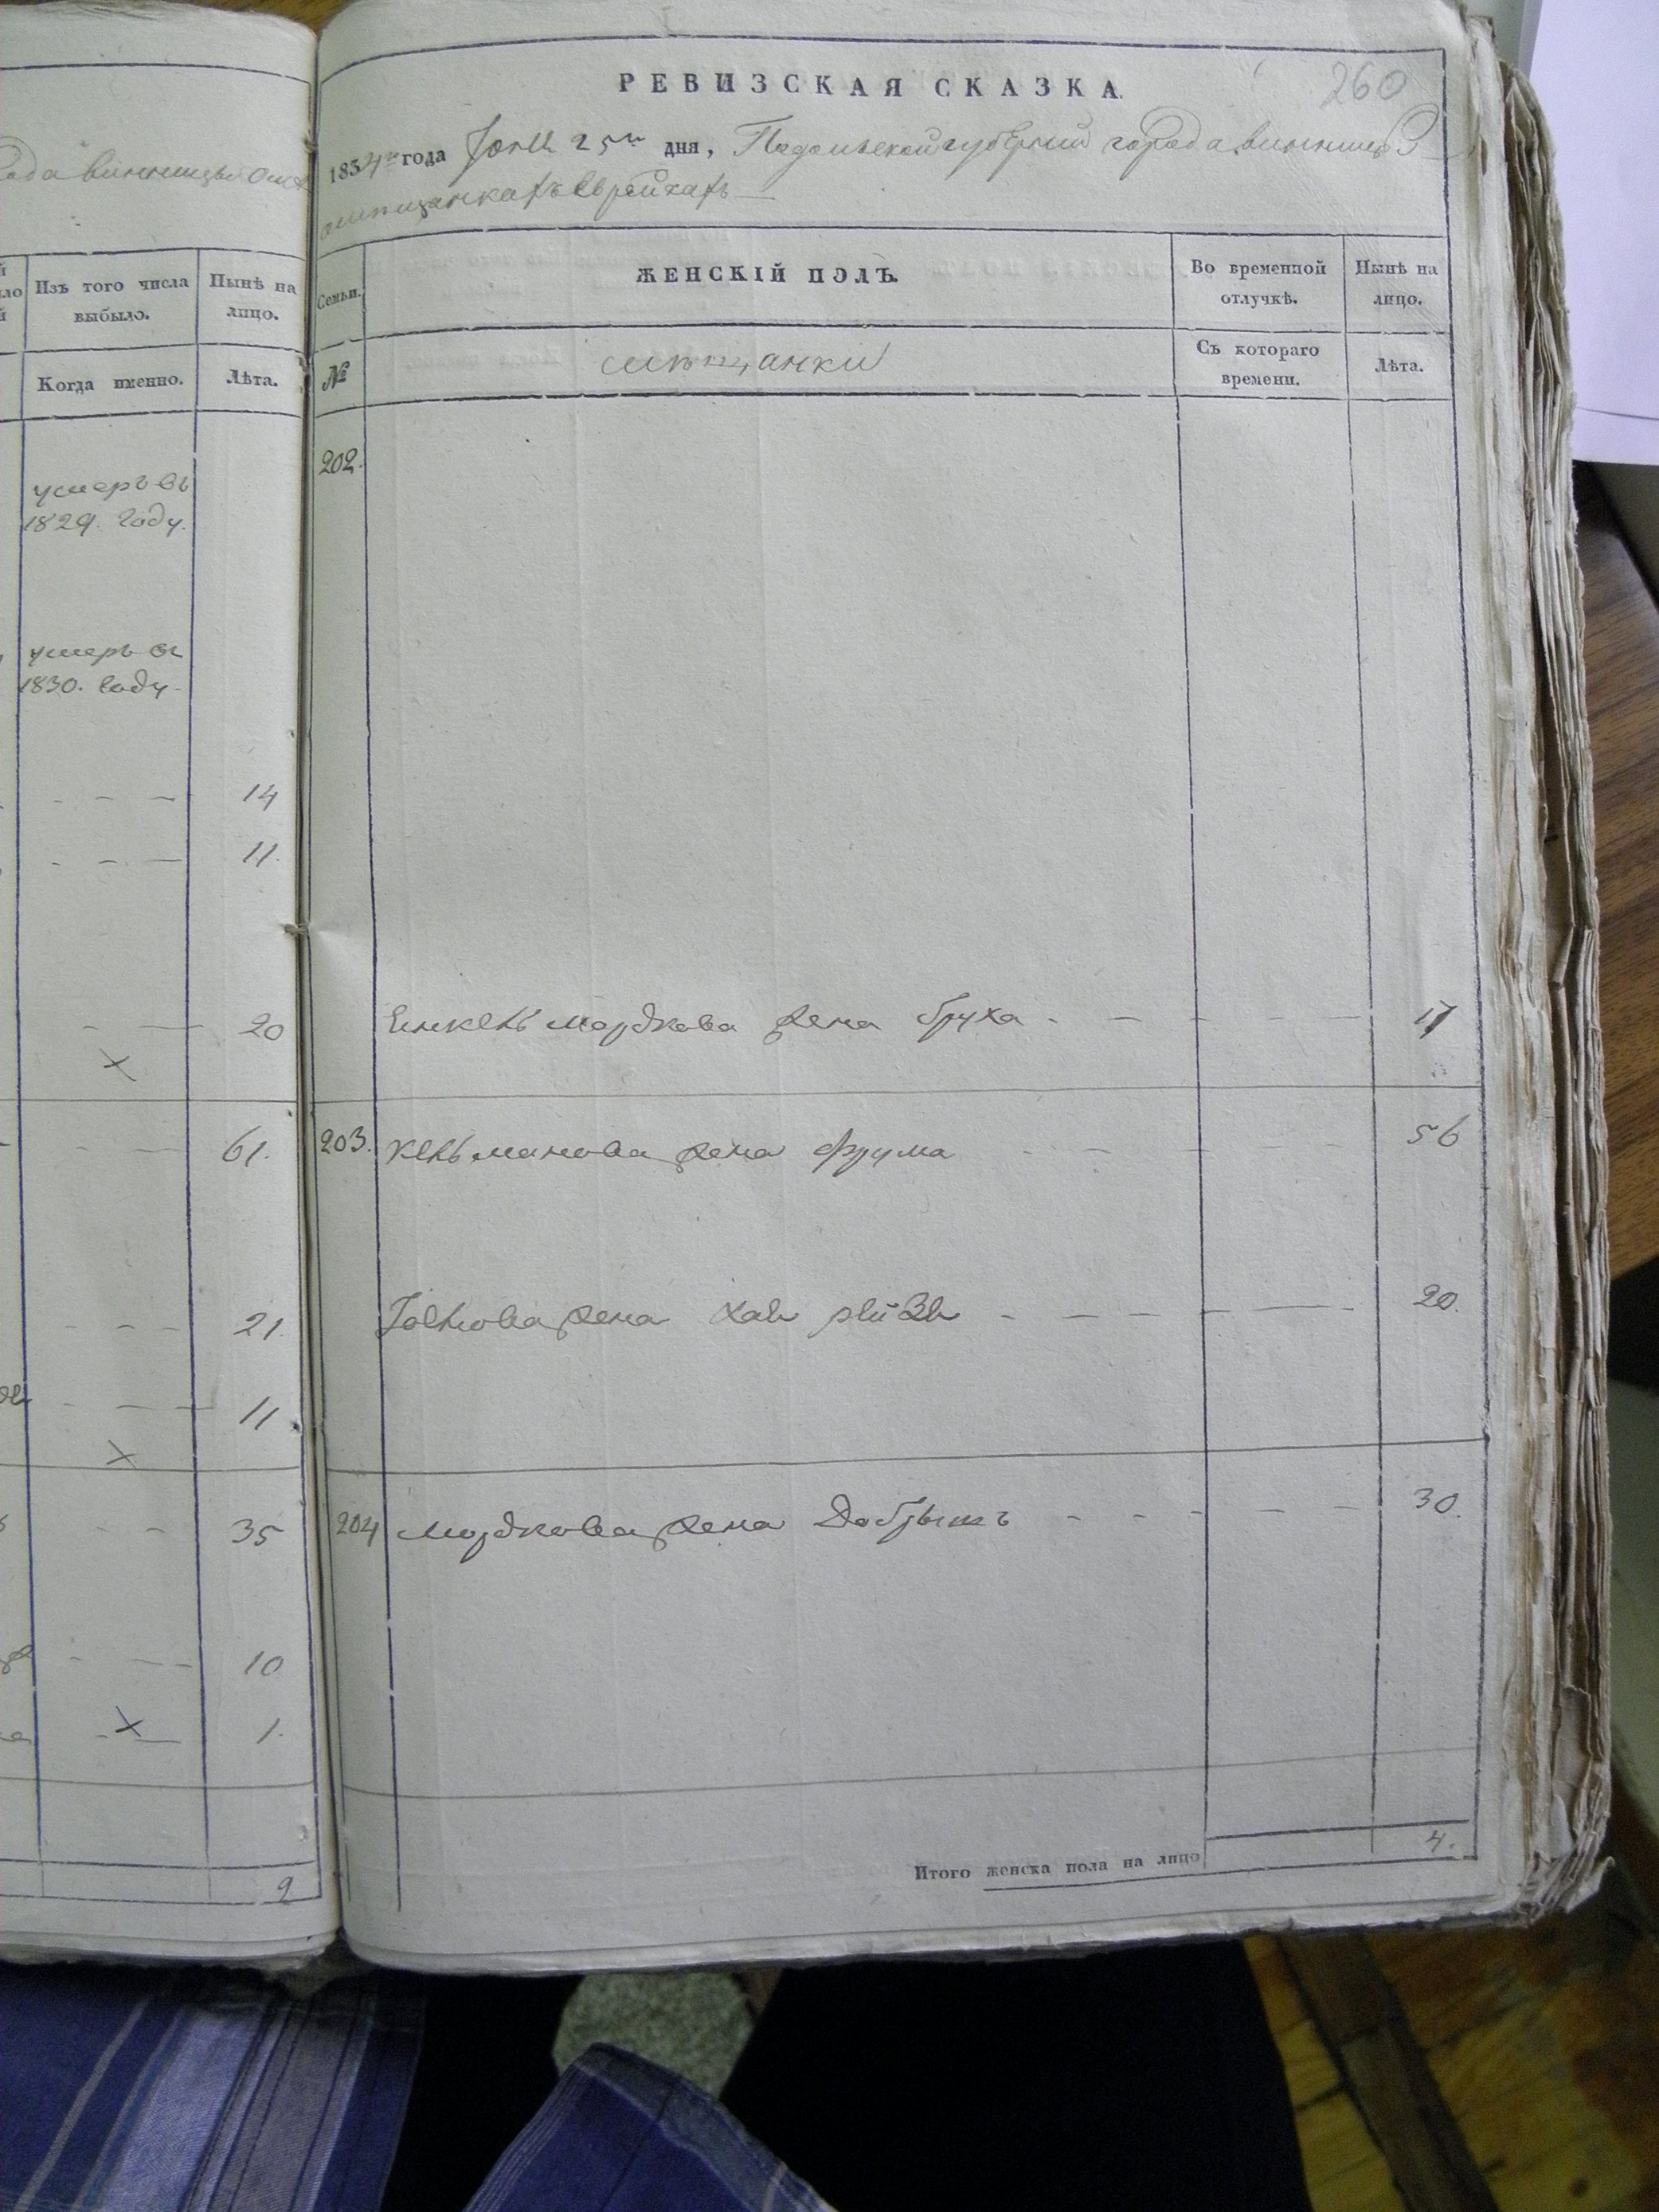 260
РЕВИЗСКАЯ СКАЗКА.
1834 года Юня 25 дня, Подольской губернии города Винницы О
мѣщанкахъ Еврейкахъ
Семьи.
ЖЕНСКІЙ ПОЛЪ.
Во временной отлучкѣ.
Нынѣ на лицо.
№
мѣщанки
Съ котораго времени.
Лѣта.
202.
мордкова жена бруха - - - - - - 17
203. Кельманова жена фрума - - - - - 56
жена Хая рейзя - - - - - 20.
204 мордкова жена Добрышъ - - - - - - 30.
Итого женска пола на лицо 4.
ода винницы о
Изъ того числа выбыло.
Нынѣ на лицо.
Когда именно.
Лѣта.
умеръ въ
1829. году.
умеръ въ
1830. году.
- - - 14
- - - 11.
- - 20
- - 61.
- - - 21.
- - - 11
- - 35
- - - 10
- - 1.
9